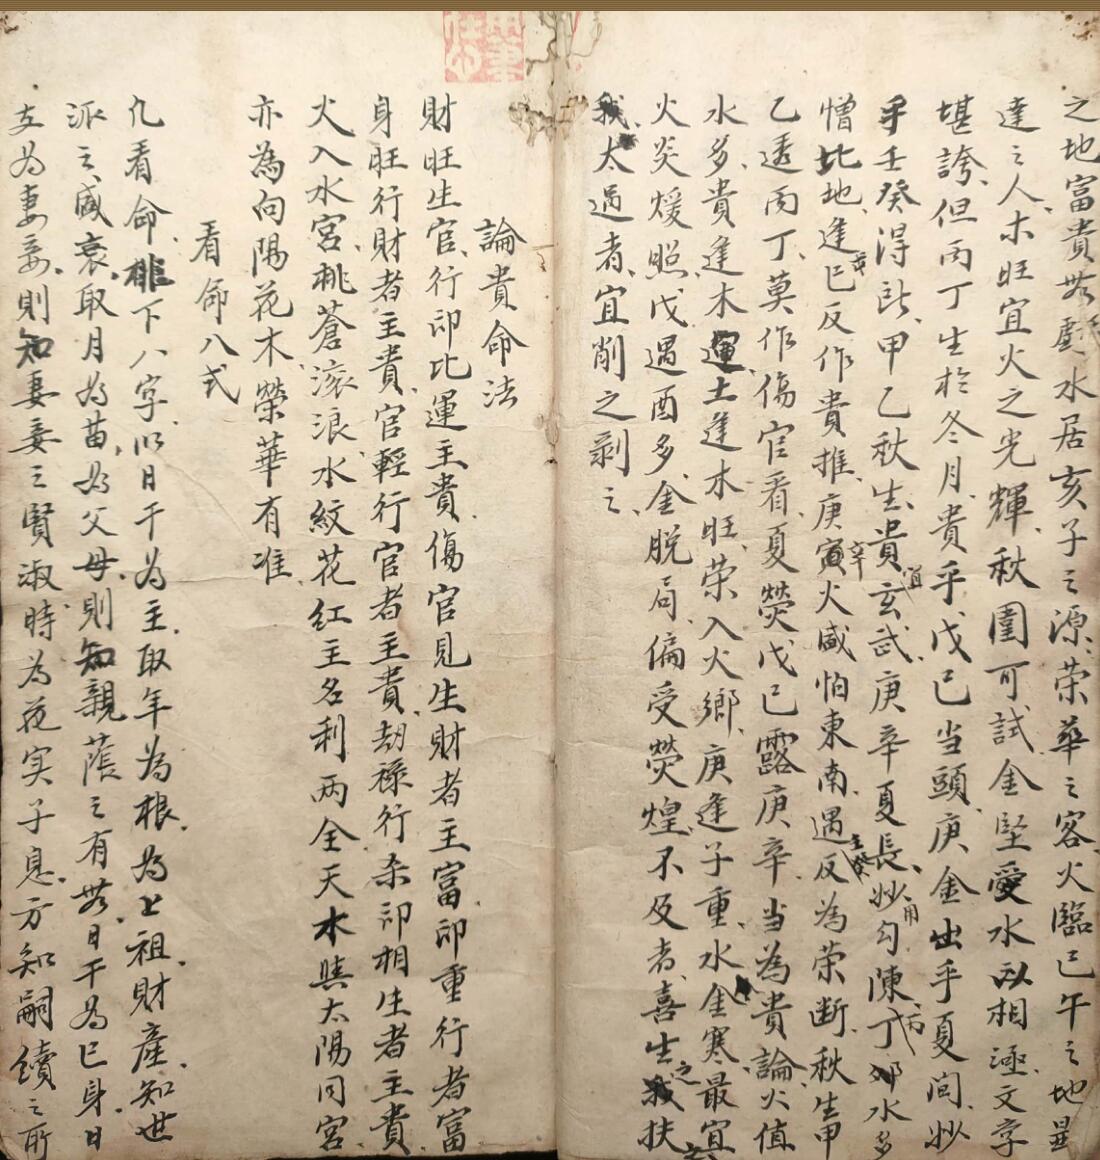 之地富貴無虧水居亥子之源荣華之客火臨巳午之地显
達之人木旺宜火之光輝秋圍可試金堅愛水以相逐文字
堪誇但丙丁生於冬月貴乎戊己当頭庚金出乎夏间妙
乎壬癸得所甲乙秋生貴玄武庚辛夏長妙用勾陳丁丙卯水多
憎比地逢巳反作貴推庚寅辛火咸怕東南遇壬癸反為荣断秋生甲
乙透丙丁莫作傷官看夏熒戊己露庚辛当為貴論火值
水多貴逢木運土逢木旺荣入火鄉庚逢子重水金寒最宜
火炎煖照戊遇酉多金脱局偏受熒煌不及者喜生之扶
我太過者宜削之剥之
論貴命法
財旺生官行印比運主貴傷官見生財者主富印重行者富
身旺行財者主貴官輕行官者主貴刼禄行杀印相生者主貴
火入水宮桃蒼滚浪水紋花红主名利两全天水與太陽同宮
亦為向陽花木榮華有准
看命八式
凡看命排下八字以日干為主取年為根為上祖財產知世
派之咸衰取月為苗為父母則知親蔭之有無日干為己身日
支為妻妾則知妻妾之賢淑時為花实子息方知嗣續之所